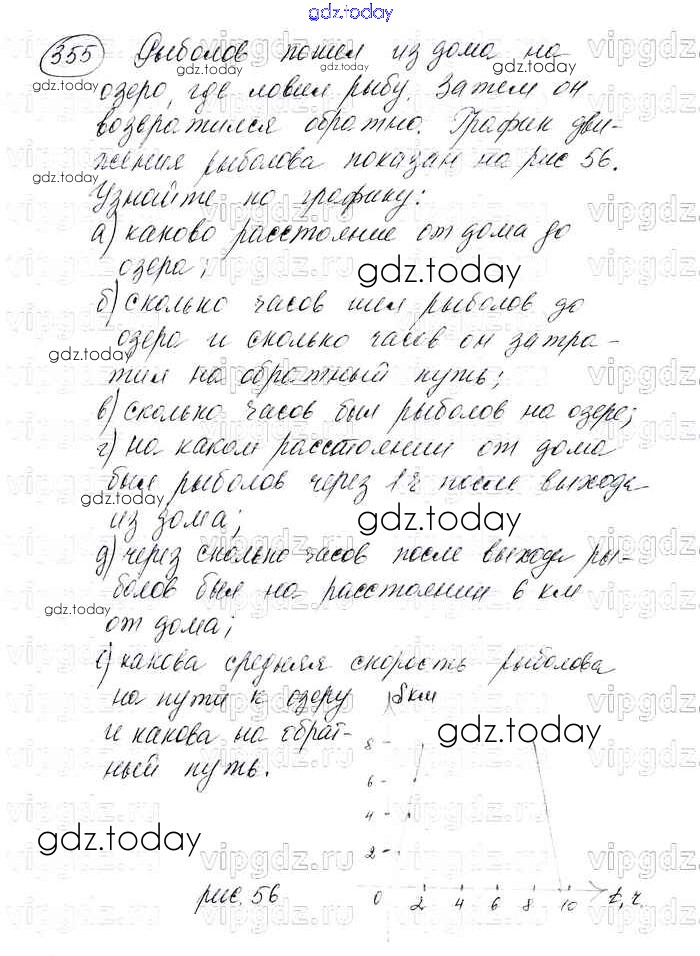 gdz.today
355 Рыболов пошел из дома на
озеро, где ловил рыбу. Затем он
возвратился обратно. График дви-
жения рыболова показан на рис 56.
Узнайте по графику:
а) каково расстояние от дома до
озера;
б) сколько часов шел рыболов до
озера и сколько часов он затра-
тил на обратный путь;
в) сколько часов был рыболов на озере;
г) на каком расстоянии от дома
был рыболов через 1 ч после выхода
из дома;
д) через сколько часов после выхода ры-
болов был на расстоянии 6 км
от дома;
е) какова средняя скорость рыболова
на пути к озеру
и какова на обрат-
ный путь.
S км
8
6
4
2
0 2 4 6 8 10 t, ч
рис. 56
gdz.today
gdz.today
gdz.today
gdz.today
gdz.today
gdz.today
gdz.today
gdz.today
gdz.today
gdz.today
vipgdz.ru